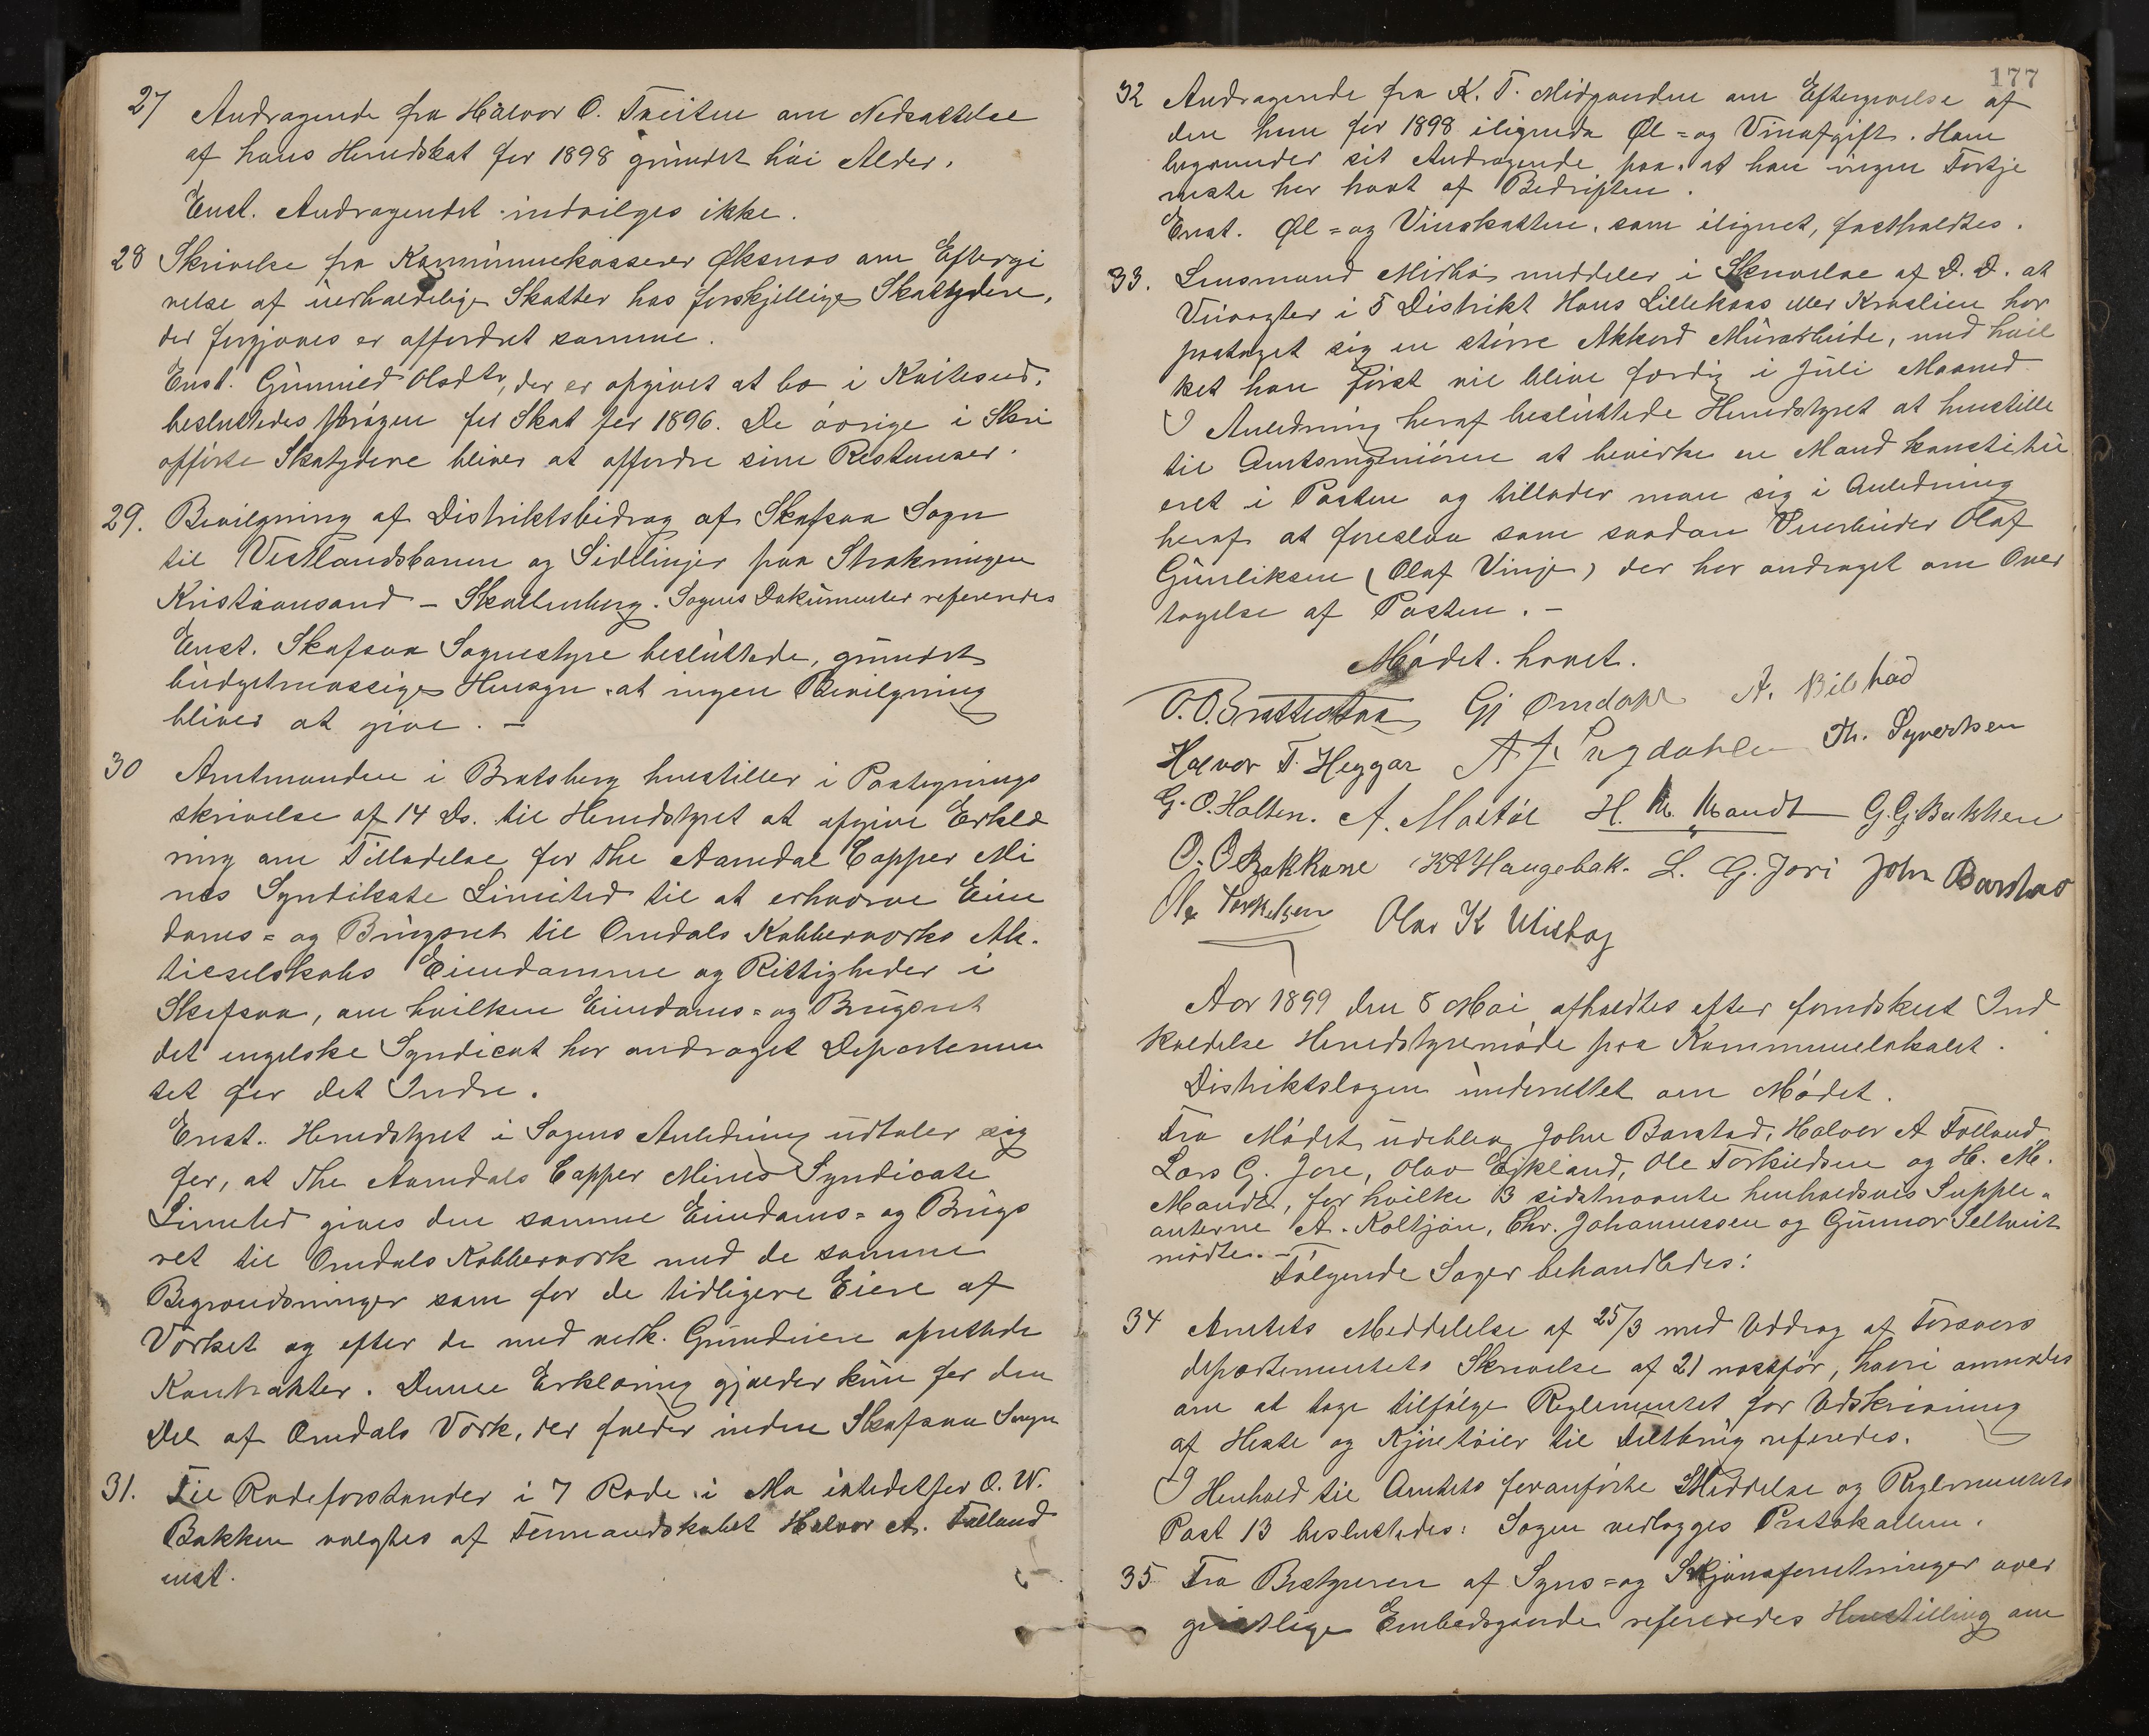 27 Andragende fra Halvor O. Tveiten om Nedsættelse
af hans Herredskat for 1898 grundet høi Alder.
Enst. Andragendet indvilges ikke.
28 Skrivelse fra Kommunekasserer Øksnæs om Eftergi
velse af uerholdelige Skatter hos forskjellige Skatydere,
der forgjæves er affordret samme.
Enst. Gunnild Olsdtr, der er opgivet at bo i Kviteseid,
besluttedes for Skat for 1896. De øvrige i Skri
opførte Skatydere bliver at affordre sine Restanser.
29. Bevilgning af Distriktsbidrag af Skafsaa Sogn
til Vestlandsbanen og Sidelinjer paa Strækningen
Kristiansand - Skollenborg. Sagens Dokumenter refereredes
Enst. Skafsaa Sognestyre besluttede, grundet
budgetmæssige Hensyn at ingen Bevilgning
bliver at give. -
30 Amtmanden i Bratsberg henstiller i Paategnings
skrivelse af 14 Ds. til Herredstyret at afgive Erklæ
ring om Tilladelse for The Aamdal Copper Mi
nes Syndikate Limited til at erhverve Eien
doms= og Brugsret til Omdals Kobberværks Ak.
tieselskabs Eiendomme og Rettigheder i
Skafsaa, om hvilken Eiendoms= og Brugsret
det engelske Syndicat har andraget Departemen
tet for det Indre.
Enst. Herredstyret i Sagens Anledning udtaler sig
for, at The Aamdals Copper Mines Syndicate
Limited gives den samme Eiendoms= og Brugs
ret til Omdals Kobberværk med de samme
Begrændsninger som for de tidligere Eiere af
Værket og efter de med vedk. Grundeiere oprettede
Kontrakter. Denne Erklæring gjælder kun for den
Del af Omdals Værk, der falder inden Skafsaa Sogn
31. Til Rodeforstander i 7 Rode i Mo istedetfor O. W.
Bakken valgtes af Formandskabet Halvor A. Folland
enst.
177
32 Andragende fra K. T. Midgaarden om Eftergivelse af
den ham for 1898 ilignede Øl= og Vinafgift. Han
begrunder sit Andragende paa, at han ingen Fortje
neste har havt af Bedriften.
Enst. Øl= og Vinskatten, som ilignet, fastholdtes.
33. Lensmand Midbø meddeler i Skrivelse af D. D. at
Veivogter i 5 Distrikt Hans Lillekaas eller Kroslien har
paataget sig en større Akkord Murarbeide, med hvil
ket han først vil blive færdig i Juli Maaned
I Anledning heraf besluttede Herredstyret at henstille
til Amtsingeniøren at bevirke en Mand konstitu
eret i Posten og tillader man sig i Anledning
heraf at foreslaa som saadan Veiarbeider Olaf
Gunliksen (Olaf Vinje) der har andraget om Over
tagelse af Posten. -
Mødet hævet.
O. O. Brattestaa Gj Omdahl A. Bilstad
Halvor T. Heggar A Th. Syvertsen
G. O. Holten. A. Mostøl H. M. Mandt G. G. Bakken
O. O. Bakkane K A Haugebak. L. G. Jori John Barstad
Ole Torkelsen Olav K
Aar 1899 den 8 Mai afholdtes efter forudskeet Ind
kaldelse Herredstyremøde paa Kommunelokalet.
Distriktslægen underrettet om Mødet.
Fra Mødet udeblev John Barstad, Halvor A Folland,
Lars G. Jore, Olav Eikland, Ole Torkildsen og H. M.
Mandt, for hvilke 3 sidstnævnte henholdsvis Supple=
anterne A. Koltjøn, Chr. Johannessen og Gunnar Seltveit
mødte. -
Følgende Sager behandledes:
34 Amtets Meddelelse af 25/3 med Uddrag af Forsvars
departementets Skrivelse af 21 næstfør, hvori anmodes
om at tage tilfølge Reglementet for Udskrivning
af Heste og Kjøretøier til Feltbrug referedes.
I Henhold til Amtets foranførte Meddelse og Reglementets
Post 13 besluttedes: Sagen vedlægges Protokollen.
35 Fra Bestyreren af Syns= og Skjønsforretninger over
geistlige Embedsgaarde refereredes Henstilling om